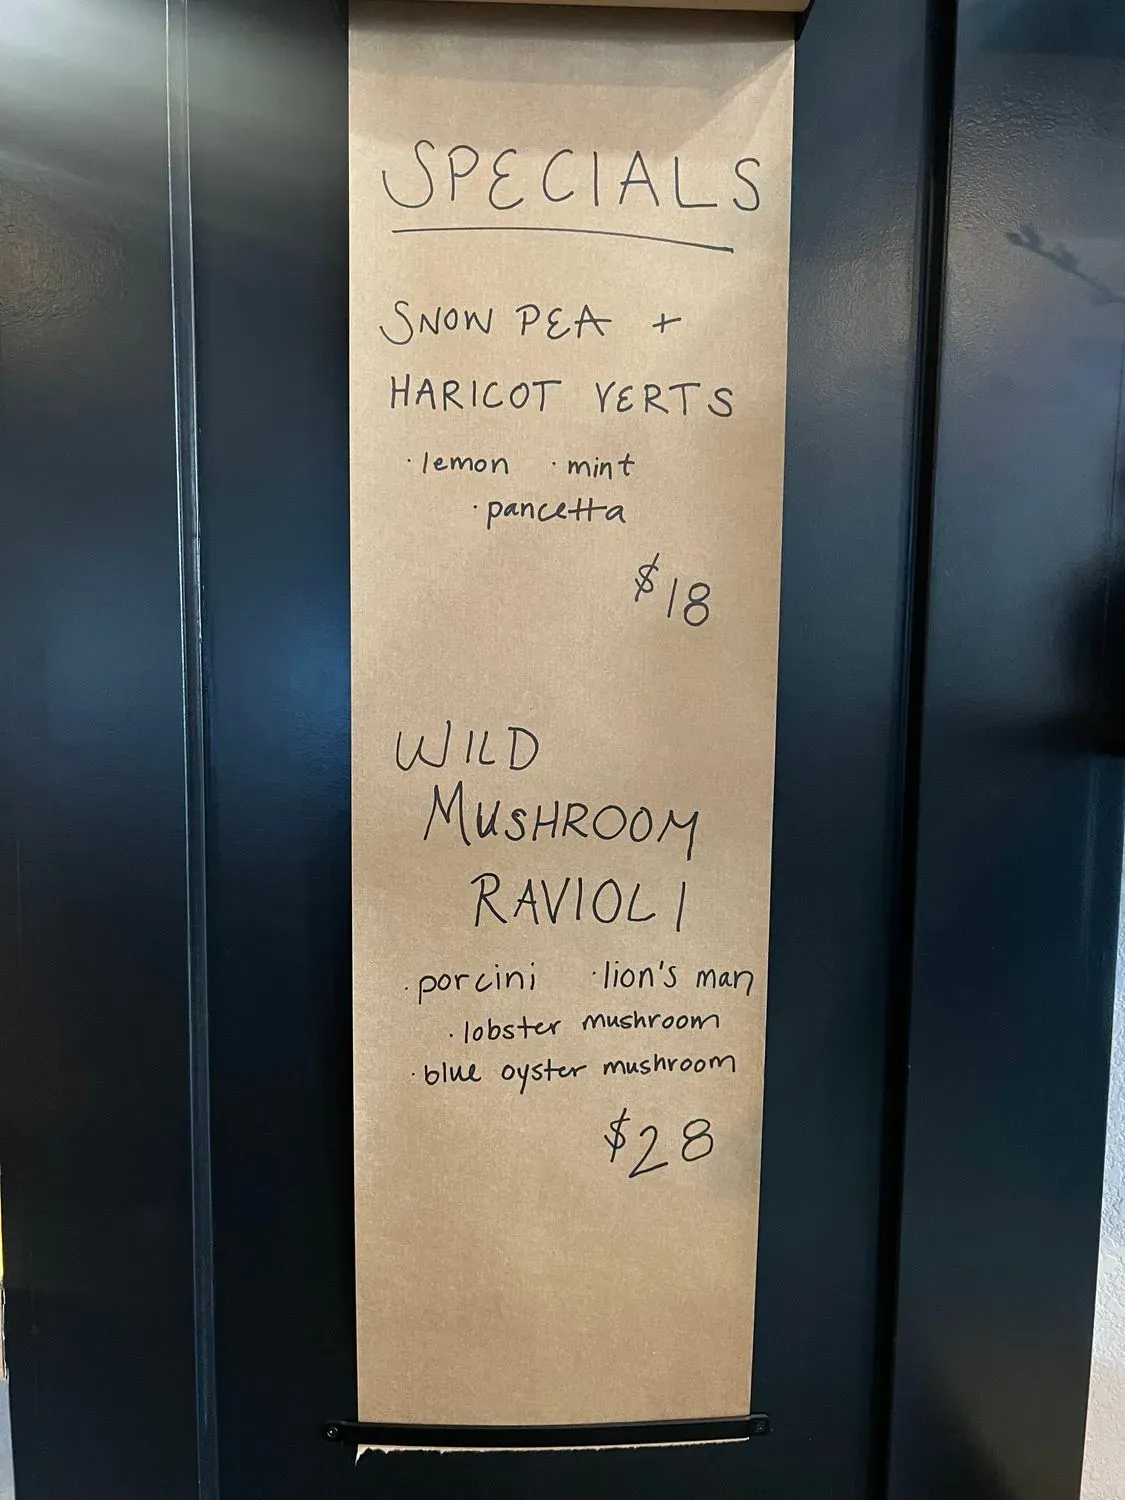 SPECIALS
SNOW PEA +
HARICOT VERTS
· lemon · mint
· pancetta
$18
WILD
MUSHROOM
RAVIOLI
· porcini · lion's man
· lobster mushroom
· blue oyster mushroom
$28